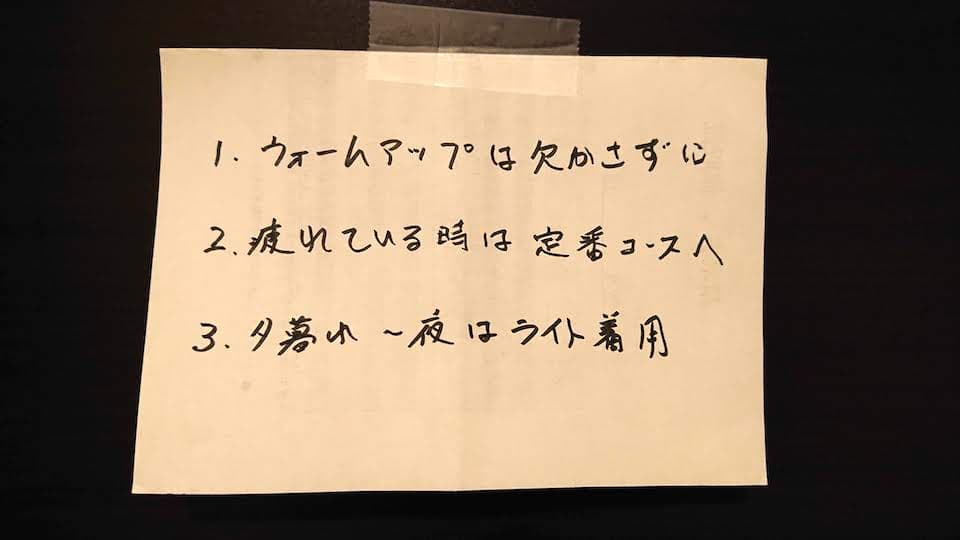 1. ウォームアップは欠かさずに
2. 疲れている時は定番コースへ
3. 夕暮れ～夜はライト着用